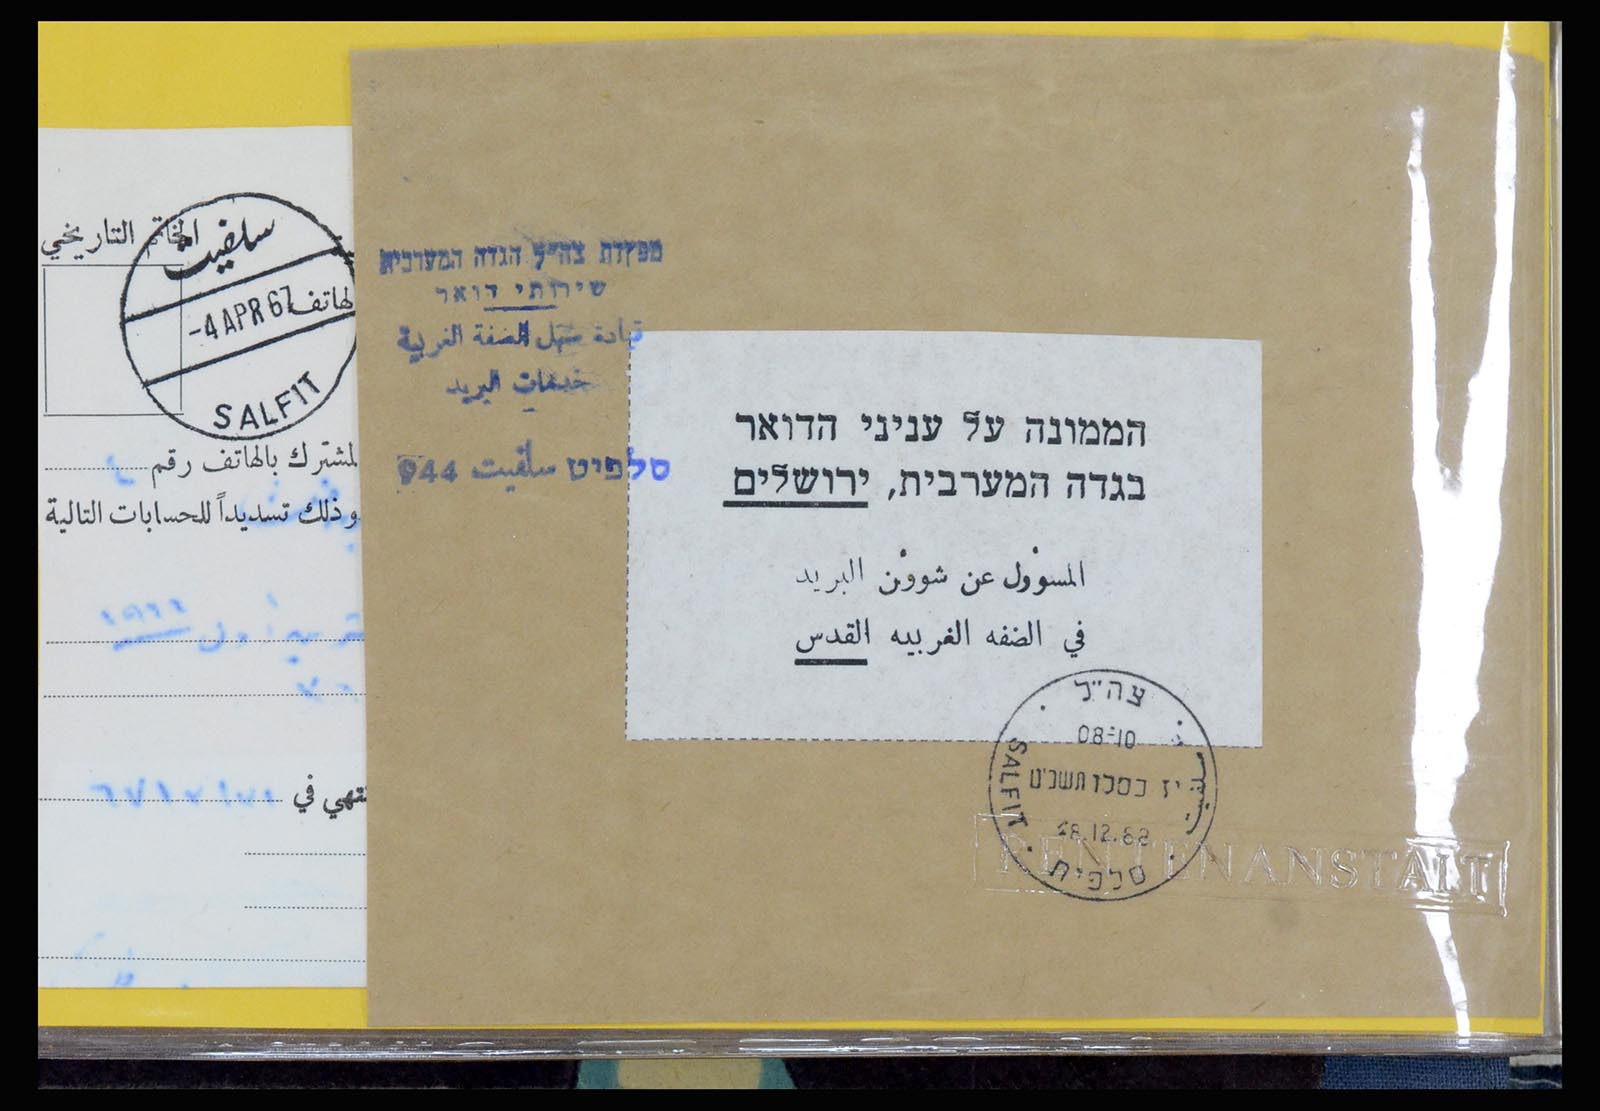 الخاتم التاريخي
سلفيت
-4 APR 67
الهاتف
SALFIT
لمشترك بالهاتف رقم
وذلك تسديداً للحسابات التالية
١٩٦٦
في
מפקדת צה״ל הגדה המערבית
שירותי דואר
قيادة الضفة الغربية
خدمات البريد
סלפיט سلفيت 944
הממונה על עניני הדואר
בגדה המערבית, ירושלים
المسوٴول عن شووٴن البريد
في الضفه الغربيه القدس
צה״ל
08-10
יז כסלו תשכ״ט
.12.68
SALFIT
سلفيت
סלפית
RENTENANSTALT